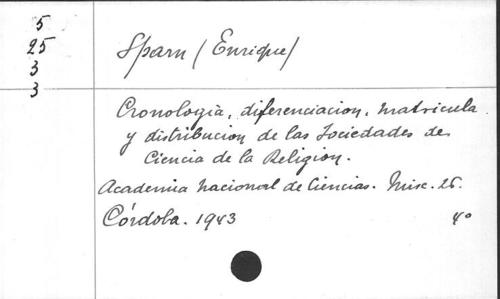 5
25
3
3
Sparn (Enrique)
Cronologia, diferenciacion, matricula
y distribucion de las Sociedades de
Ciencia de la Religion.
Academia Nacional de Ciencias. Misc. 25.
Córdoba. 1943 4º